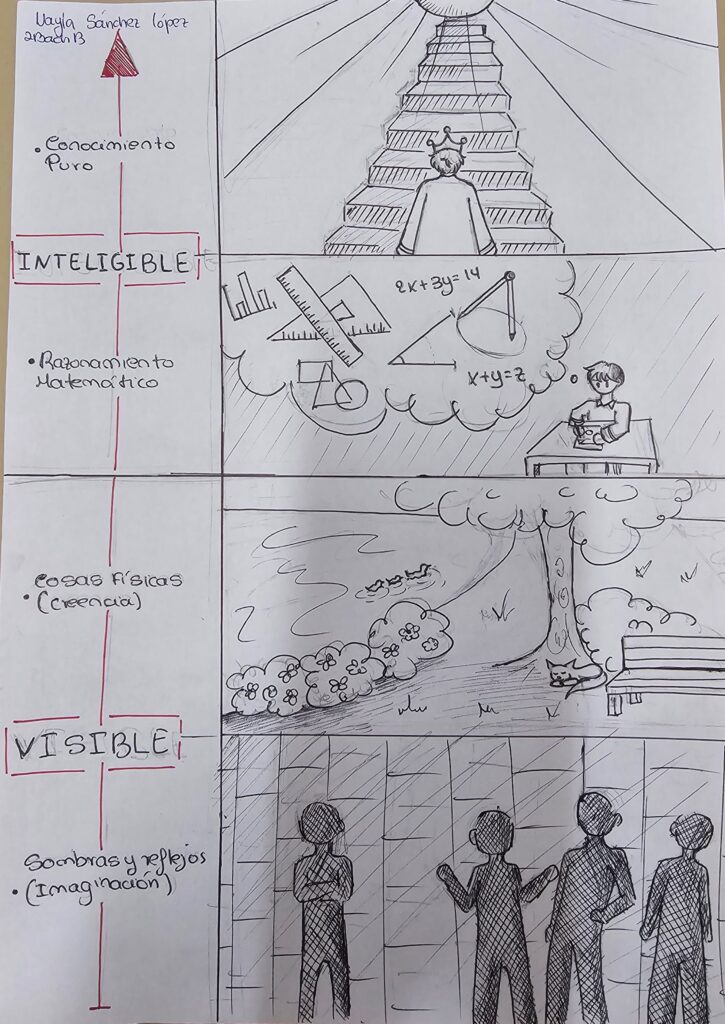 Nayla Sánchez López
2Bach B
• Conocimiento
Puro
INTELIGIBLE
2x+3y=14
x+y=z
• Razonamiento
Matemático
Cosas Físicas
• (creencia)
VISIBLE
Sombras y reflejos
• (Imaginación)